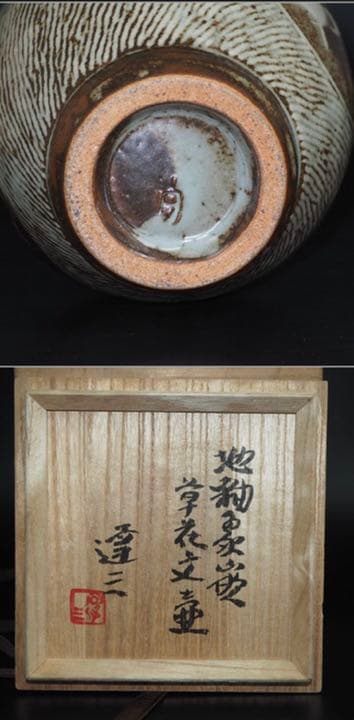 地釉象嵌
草花文壷
達三